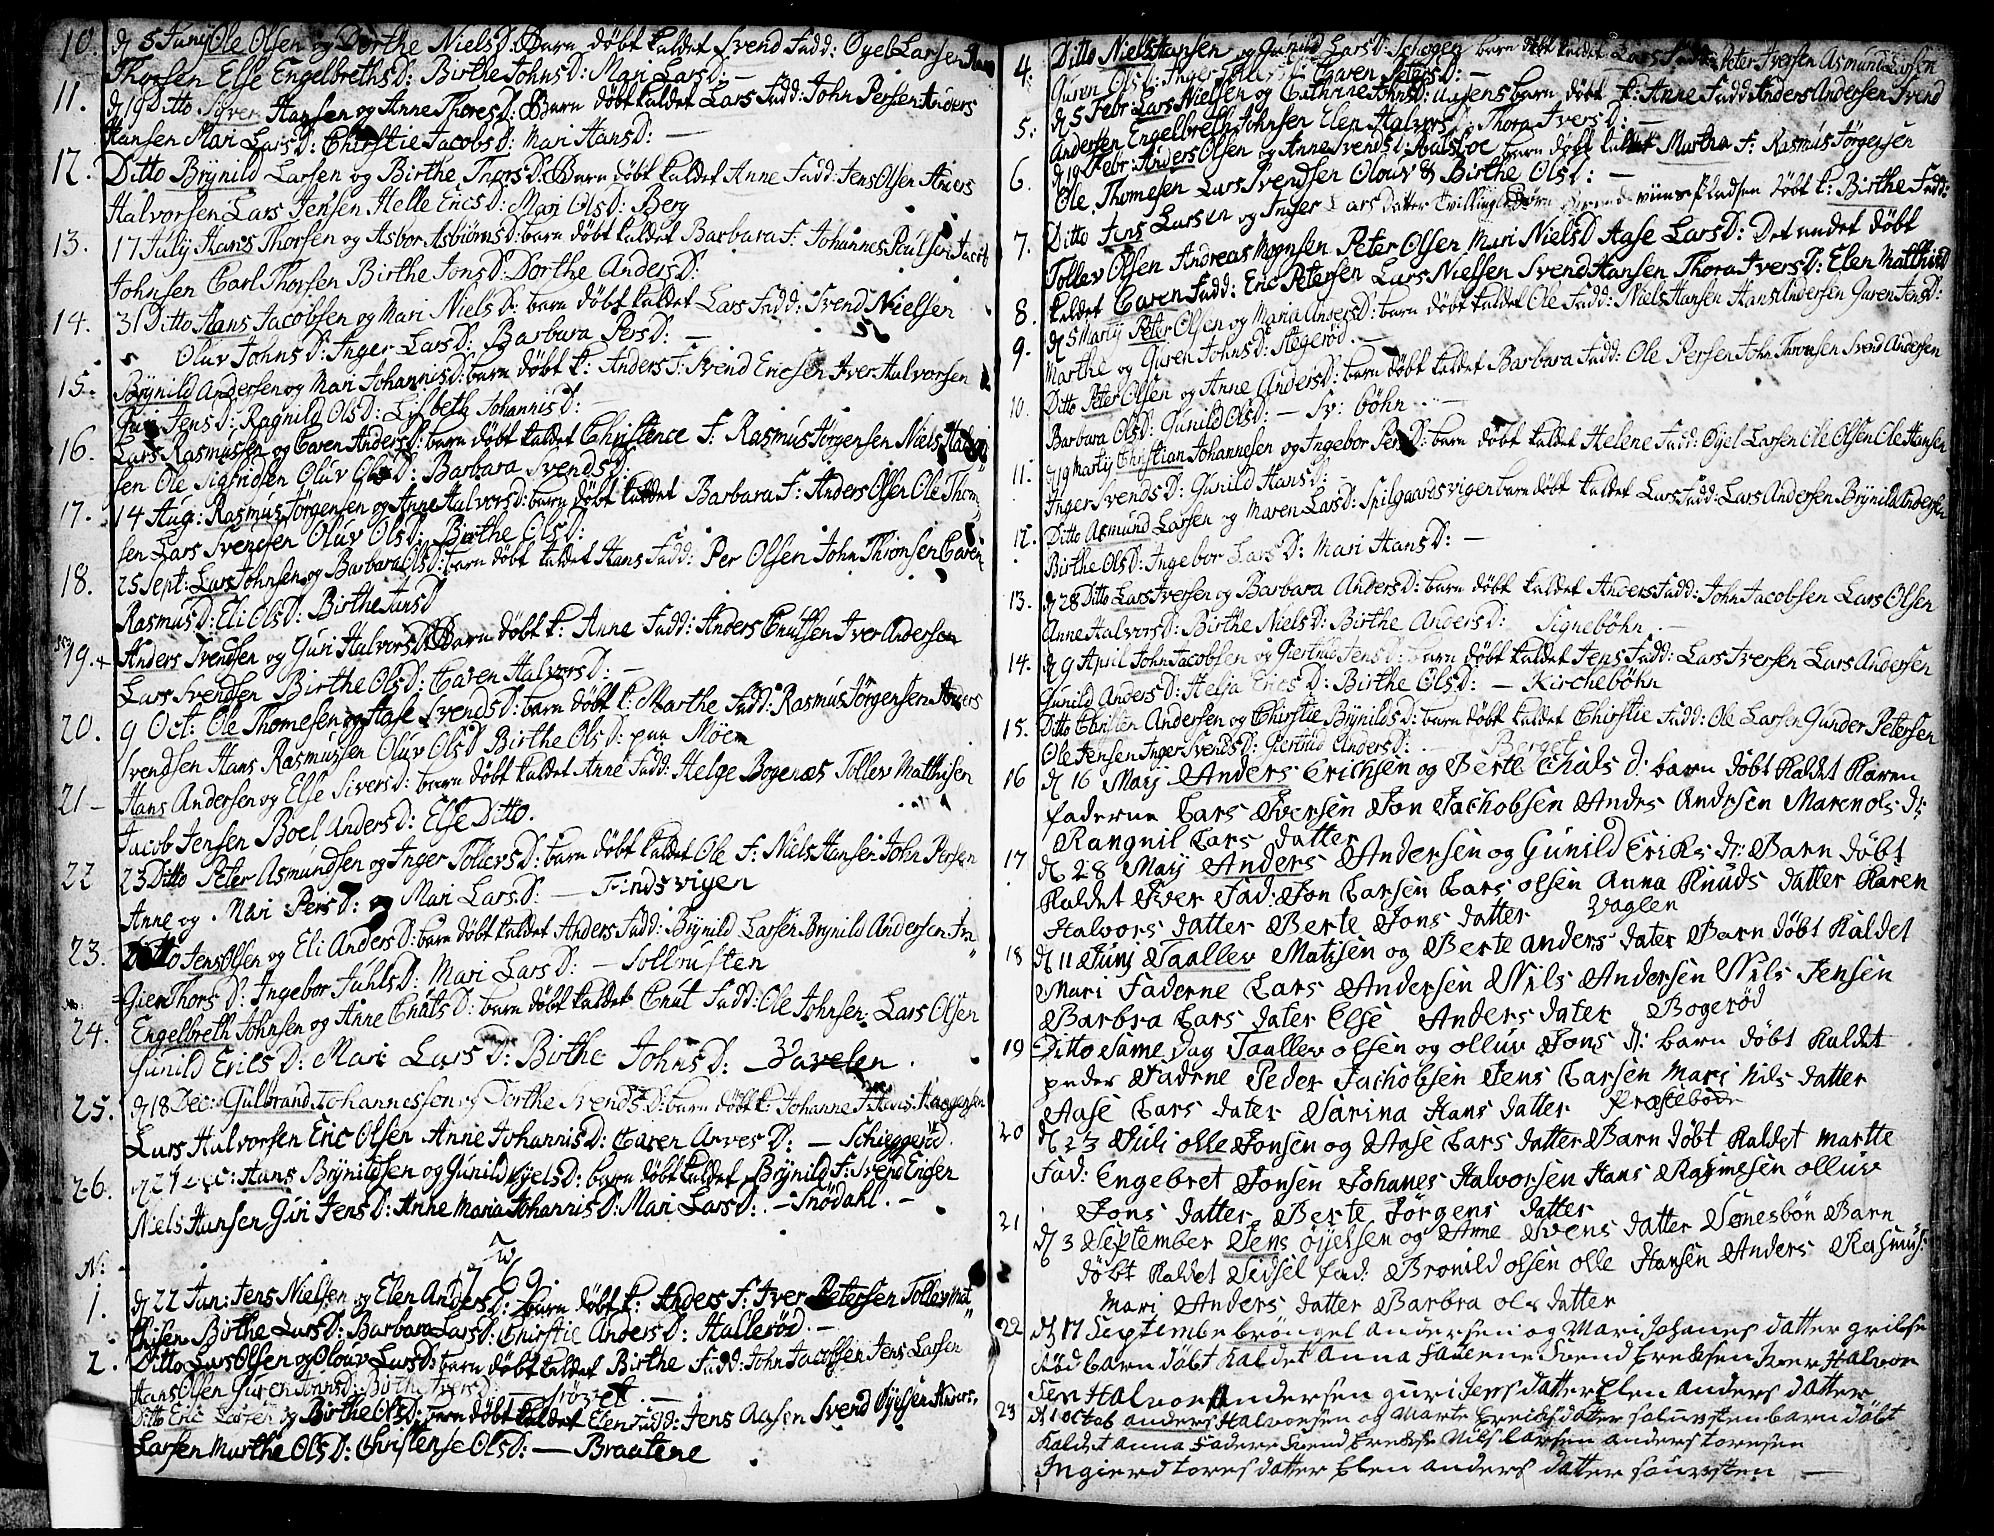 10. d 5 Junij Ole Olsen og Dorthe NielsD: Barn döbt kaldet Svend Fadd: Öyel Larsen
Thorsen Else EngelbrethsD: Birthe JohnsD: Mari LarsD: —
11. d 19 Ditto Syver Hansen og Anne ThoresD: Barn döbt kaldet Lars Fadd: John Persen Anders
Hansen Mari LarsD: Chirstie JacobsD: Mari HansD: —
12. Ditto Brÿnild Larsen og Birthe ThorsD: Barn döbt kaldet Anne Fadd: Jens Olsen Anders
Halvorsen Lars Jensen Helle EricsD: Mari OlsD: Berg
13. 17 July Hans Thorsen og Asbor AsbiörnsD: barn döbt kaldet Barbara F: Johannes Poulsen Jacob
Johnsen Carl Thorsen Birthe JonsD: Dorthe AndersD:
14. 31 Ditto Hans Jacobsen og Mari NielsD: barn döbt kaldet Lars Fadd: Svend Nielsen
Oluv JohnsD: Inger LarsD: Barbara PersD: —
15. Brÿnild Andersen og Mari JohannisD: barn döbt k: Anders F: Svend Ericsen Iver Halvorsen
Guri JensD: Ragnild OlsD: Lisbeth JohannisD: —
16. Lars Rasmussen og Caren AndersD: barn döbt kaldet Christence F: Rasmus Jörgensen Niels
sen Ole Sigfridsen Oluv OlsD: Barbara SvendsD:
17. 14 Aug: Rasmus Jörgensen og Anne HalvorsD: barn döbt kaldet Barbara F: Anders Olsen Ole Thom
sen Lars Svendsen Oluv OlsD: Birthe OlsD:
18. 25 Sept: Lars Johnsen og Barbara OlsD: barn döbt kaldet Hans Fadd: Per Olsen John Thronsen Caren
RasmusD: Eli OlsD: Birthe JansD
19. Anders Svendsen og Guri HalvorsD: Barn döbt k: Anne Fadd: Anders Cnutsen Iver Andersen
Lars Svendsen Birthe OlsD: Caren HalvorsD: —
20. 9 Oct: Ole Thomesen og Aase SvendsD: barn döbt k: Marthe Fadd: Rasmus Jörgensen Anders
Svendsen Hans Rasmussen Oluv OlsD Birthe OlsD: paa Möen
21 — Hans Andersen og Else SiversD: barn döbt kaldet Anne Fadd: Helge Bogenæs Tollev Matthisen
Jacob Jensen Boel AndersD: Else Ditto.
22 23 Ditto Peter Asmundsen og Inger TollevsD: barn döbt kaldet Ole F: Niels Hansen John Persen
Anne og Mari PersD: og Mari LarsD: — Findsvigen
23. Ditto Jens Olsen og Eli AndersD: barn döbt kaldet Anders Fadd: Brÿnild Larsen Brÿnild Andersen
Gien ThorsD: Ingebor JuhlsD: Mari LarsD: — Sollrusten
24. Engelbreth Johnsen og Anne CnutsD: barn döbt kaldet Cnut Fadd: Ole Johnsen Lars Olsen
Gunild EricsD: Mari LarsD: Birthe JohnsD: Vavelen.
25. d 18 Dec: Gulbrand Johannessen og Dorthe SvendsD: barn döbt k: Johanne F: Hans Haagensen
Lars Halvorsen Eric Olsen Anne JohannisD: Caren ArvesD: — Schieggeröd.
26. d 27 Dec: Hans Brÿnildsen og Gunild ÖyelsD: barn döbt kaldet Brÿnild F: Svend Ericsen
Niels Hansen Giri JensD: Anne Maria JohannisD: Mari LarsD: — Snödahl. —
N: 1769.
1. d 22 Jan: Jens Nielsen og Elen AndersD: barn döbt k: Anders F: Iver Petersen Tollev Mat
thisen Birthe LarsD: Barbara LarsD: Chirstie AndersD: Halleröd: —
2. Ditto Lars Olsen og Olouv LarsD: barn döbt kaldet Birthe Fadd: John Jacobsen Jens Larsen
Hans Olsen Guren JonnsD: Birthe IversD:
Ditto Eric Larsen og Birthe OlsD: barn döbt kaldet Elen Fadd: Jens Aasen Svend Öyelsen Anders
Larsen Marthe OlsD: Christense OlsD: — Braatene
4. Ditto Niels Hansen og Gunild LarsD: Schogen barn döbt kaldet Lars Fadd: Peter Iversen Asmund Larsen
Guren OlsD: Inger Caren PetersD: —
5. d 5 Febr: Lars Nielsen og Cathrine JohnsD: barn döbt k: Anne Fadd: Anders Andersen Svend
Andersen Engelbreth Johnsen Elen HalvorsD: Thora IversD: —
6. d 19 Febr: Anders Olsen og Anne SvendsD: barn döbt kaldet Martha F: Rasmus Jörgensen
Ole Thomesen Lars Svendsen Olouv & Birthe OlsD: —
7. Ditto Jens Larsen og Inger Lars datter Tvillinge Börn pladsen döbt k: Birthe Fadd:
Tollev Olsen Andreas Mognsen Peter Olsen Mari NielsD Aase LarsD: Det andet döbt
kaldet Caren Fadd: Eric Petersen Lars Nielsen Svend Hansen Thora IversD: Elen Matthisd
8. d 5 Martÿ Peter Olsen og Maria AndersD: barn döbt kaldet Ole Fadd: Niels Hansen Hans Andersen Guren JensD:
9. Marthe og Guren JohnsD: Stegeröd. —
10. Ditto Peter Olsen og Anne AndersD: barn döbt kaldet Barbara Fadd: Ole Persen John Thronsen Svend Andersen
Barbara OlsD: Gunild OlsD: — Sv: böhn. —
11. d 19 Martÿ Christian Johannesen og Ingebor PersD: barn döbt kaldet Helene Fadd: Öyel Larsen Ole Olsen Ole Hansen
Inger SvendsD: Gunild HansD: —
12. Ditto Asmund Larsen og Maren LarsD: Spilgaardsvigen barn döbt kaldet Lars Fadd: Lars Andersen Brÿnild Andersen
Birthe OlsD: Ingebor LarsD: Mari HansD: —
13. d 28 Ditto Lars Iversen og Barbara AndersD: barn döbt kaldet Anders Fadd: John Jacobsen Lars Olsen
Anne HalvorsD: Birthe NielsD: Birthe AndersD: Signeböhn. —
14. d 9 April John Jacobsen og Giertrud JensD: barn döbt kaldet Jens Fadd: Lars Iversen Lars Andersen
Gunild AndersD: Helja EricsD: Birthe OlsD: — Kircheböhn
15. Ditto Christen Andersen og Chirstie BrÿnildsD: barn döbt kaldet Chirstie Fadd: Ole Larsen Gunder Petersen
Ole Jensen Inger SvendsD: Giertrud AndersD: — Berget
16 d 16 Maij Anders Erichsen og Berte Chals d: barn döbt Kaldet Karen
faderne Lars Iversen Jon Jachobsen Andrs Andrsen Maren ols dr
Rangnil Lars datter
17 d 28 Maij Anders Andersen og Gunild Eriks dr: Barn döbt
Kaldet Iver Fad: Jon Larsen Lars olsen Anna Knuds datter Karen
Halvors datter Berte Jons datter Vaglen
18 d 11 Junj Taallev Matisen og Berte anders dater Barn döbt Kaldet
Mari Faderne Lars Andersen Nils Andersen Nils Jensen
Barbra Lars dater Else Anders dater Bogeröd
19 Ditto Same dag Taallev olsen og olluv Jons dr: barn döbt Kaldet
peder Faderne Peder Jachobsen Jens Larsen Mari Nils datter
Aase Lars dater Sarina Hans datter Præsteböde
20 d 23 Juli olle Jonsen og Aase Lars datter Barn döbt Kaldet martte
Fad: Engebret Jonsen Johanes Halvorsen Hans Rasmesen olluv
Jons datter Berte Jörgens datter
21 d 3 September Jens öyelsen og Anne Svens datter Semesbön Barn
döbt Kaldet Sidsel fad: Bronild olsen olle Hansen Anders Rasmus:
Mari Anders datter Barbra ols datter
22 d 17 Septembe bröngel andersen og Mari Johanes datter gribse
Röd barn döbt Kaldet anna Faderne Svend Ereksen Iver Halvor
sen Halvor Andersen guri Jens datter Elen anders datter
23 d 1 octob anders Halvorsen og Marte Ereiksdatter solursten barn döbt
Kaldet anna Fadere Svend Erekse Nils Larsen anders toresen
Ingierd tores datter Elen anders datter soursten —